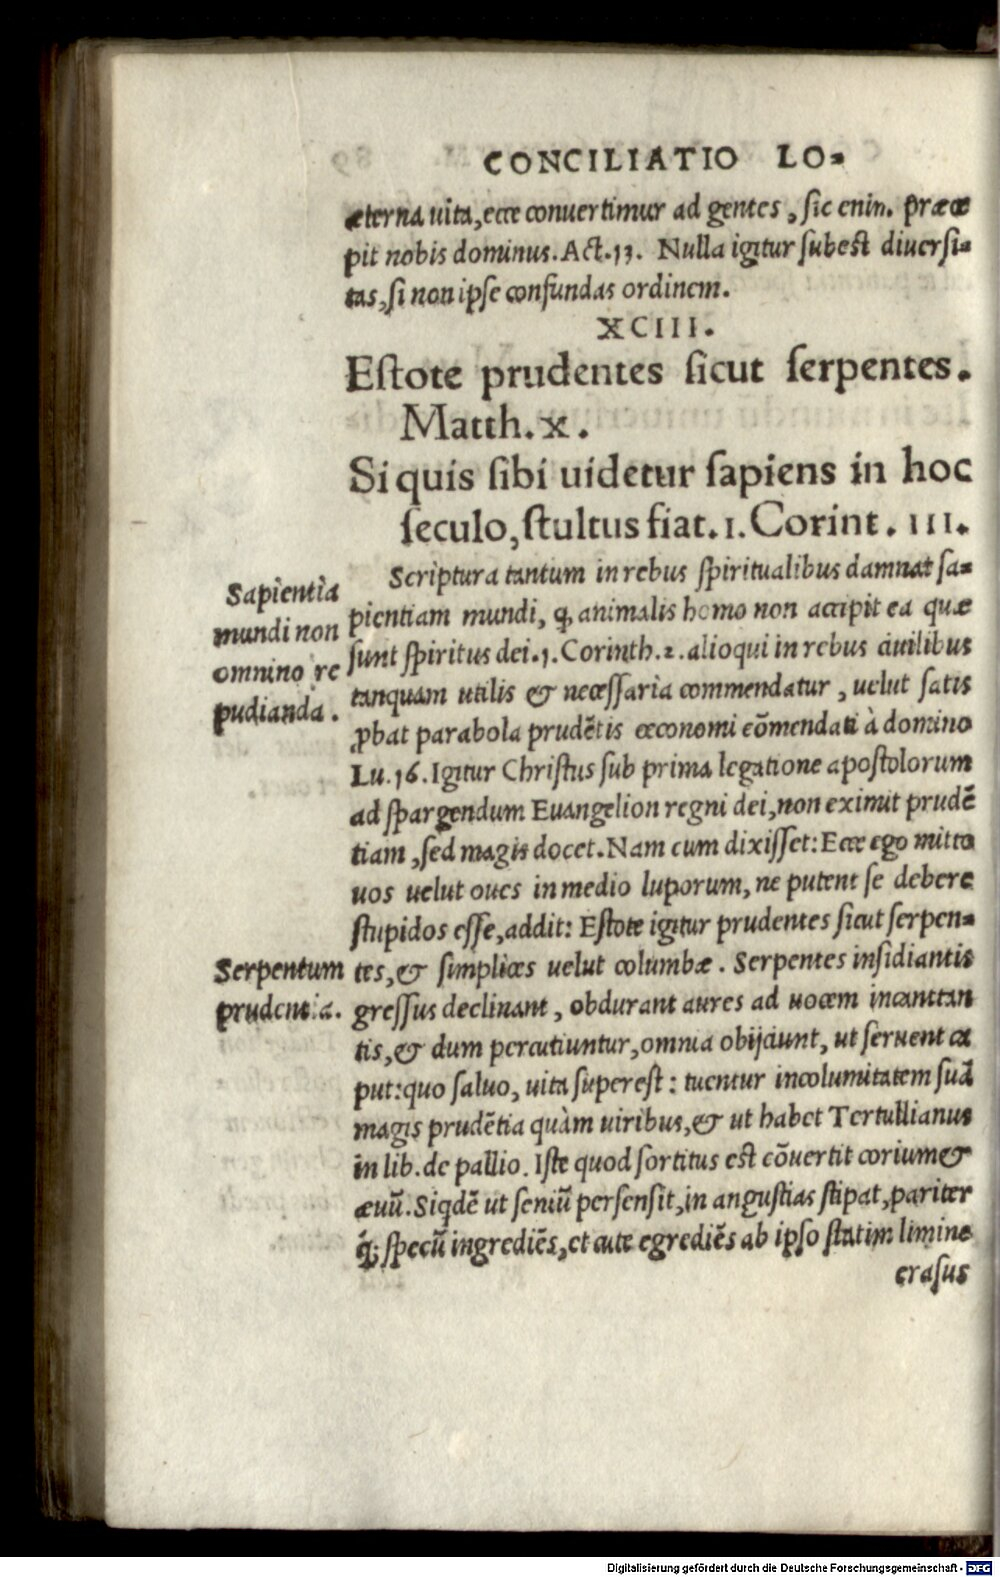 CONCILIATIO LO-
æterna uita, ecce conuertimur ad gentes, sic enim. præce
pit nobis dominus. Act. 13. Nulla igitur subest diuersi-
tas, si non ipse confundas ordinem.
XCIII.
Estote prudentes sicut serpentes.
Matth. x.
Si quis sibi uidetur sapiens in hoc
seculo, stultus fiat. 1. Corint. III.
Sapientia
mundi non
omnino re
pudianda.
Scriptura tantum in rebus spiritualibus damnat sa-
pientiam mundi, ꝙ animalis homo non accipit ea quæ
sunt spiritus dei. 1. Corinth. 2. alioqui in rebus ciuilibus
tanquam utilis & necessaria commendatur, uelut satis
ꝓbat parabola prudẽtis œconomi cõmendati à domino
Lu. 16. Igitur Christus sub prima legatione apostolorum
ad spargendum Euangelion regni dei, non eximit prudẽ
tiam, sed magis docet. Nam cum dixisset: Ecce ego mitto
uos uelut oues in medio luporum, ne putent se debere
stupidos esse, addit: Estote igitur prudentes sicut serpen-
Serpentum
prudentia.
tes, & simplices uelut columbæ. Serpentes insidiantis
gressus declinant, obdurant aures ad uocem incantan
tis, & dum percutiuntur, omnia obijciunt, ut seruent ca
put: quo saluo, uita superest: tuentur incolumitatem suã
magis prudẽtia quàm uiribus, & ut habet Tertullianus
in lib. de pallio. Iste quod sortitus est cõuertit corium &
æuũ. Siqdẽ ut seniũ persensit, in angustias stipat, pariter
q́; specũ ingrediẽs, et cute egrediẽs ab ipso statim limine
erasus
Digitalisierung gefördert durch die Deutsche Forschungsgemeinschaft - DFG